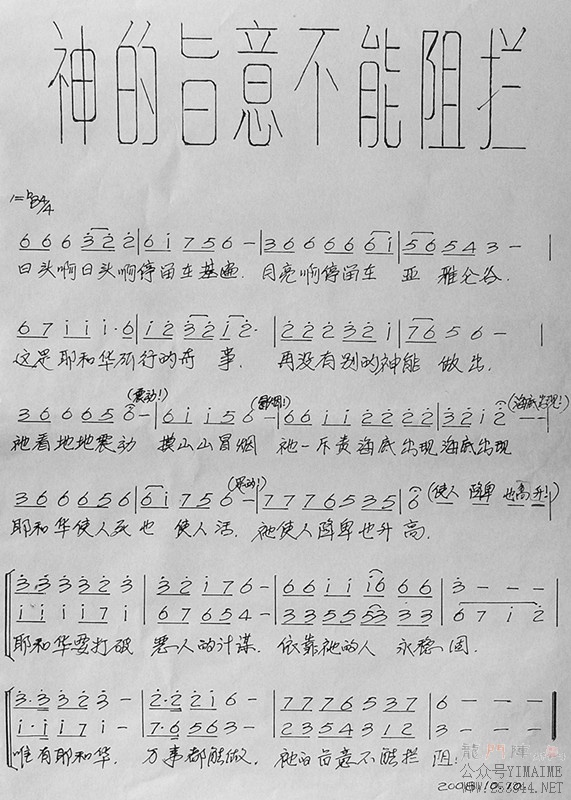 神的旨意不能阻拦
1=♭B 4/4
6 6 6 3̇ 2̇ 2̇ | 6 i 7 5 6 – | 3 6 6 6 6 6 i | 5 6 5 4 3 – |
日头啊日头啊停留在基遍. 月亮啊停留在 亚雅仑谷.
6 7 i i i · 6 | i 2̇ 3̇ 2̇ i 2̇ · | 2̇ 2̇ 2̇ 3̇ 2̇ i | 7 6 5 6 – |
这是耶和华所行的奇事. 再没有别的神能做出.
(震动!) (冒烟!) (海底出现!)
3 6 6 6 6 5 6 – | 6 i i 5 6 – | 6 6 i i 2̇ 2̇ 2̇ 2̇ | 3̇ 2̇ i 2̇ – – |
祂看地地震动 摸山山冒烟 祂一斥责海底出现海底出现
(震动!) (使人降卑也高升!)
3 6 6 6 6 5 6 | 6 i i 7 5 6 – | 7 7 7 6 5 3 5 | 6 – – – |
耶和华使人死也使人活. 祂使人降卑也升高.
3̇ · 3̇ 3̇ 3̇ 2̇ 3̇ | 3̇ 2̇ i 7 6 – | 6 6 i i i 6 6 6 | 3̇ – – – |
i i i i 7 i | 6 7 6 5 4 – | 3 3 5 5 5 3 3 3 | 6 7 i 2̇ |
耶和华要打破恶人的计谋. 依靠祂的人永稳固.
3̇ · 3̇ 3̇ 2̇ 3̇ – | 2̇ · 2̇ 2̇ i 6 – | 7 7 7 6 5 3 7 | 6 – – – ‖
i · i i 7 i – | 7 · 6 5 6 3 – | 2 3 5 4 3 1 2 | 3 – – – ‖
唯有耶和华. 万事都能做. 祂的旨意不能拦阻.
公众号YIMAIME